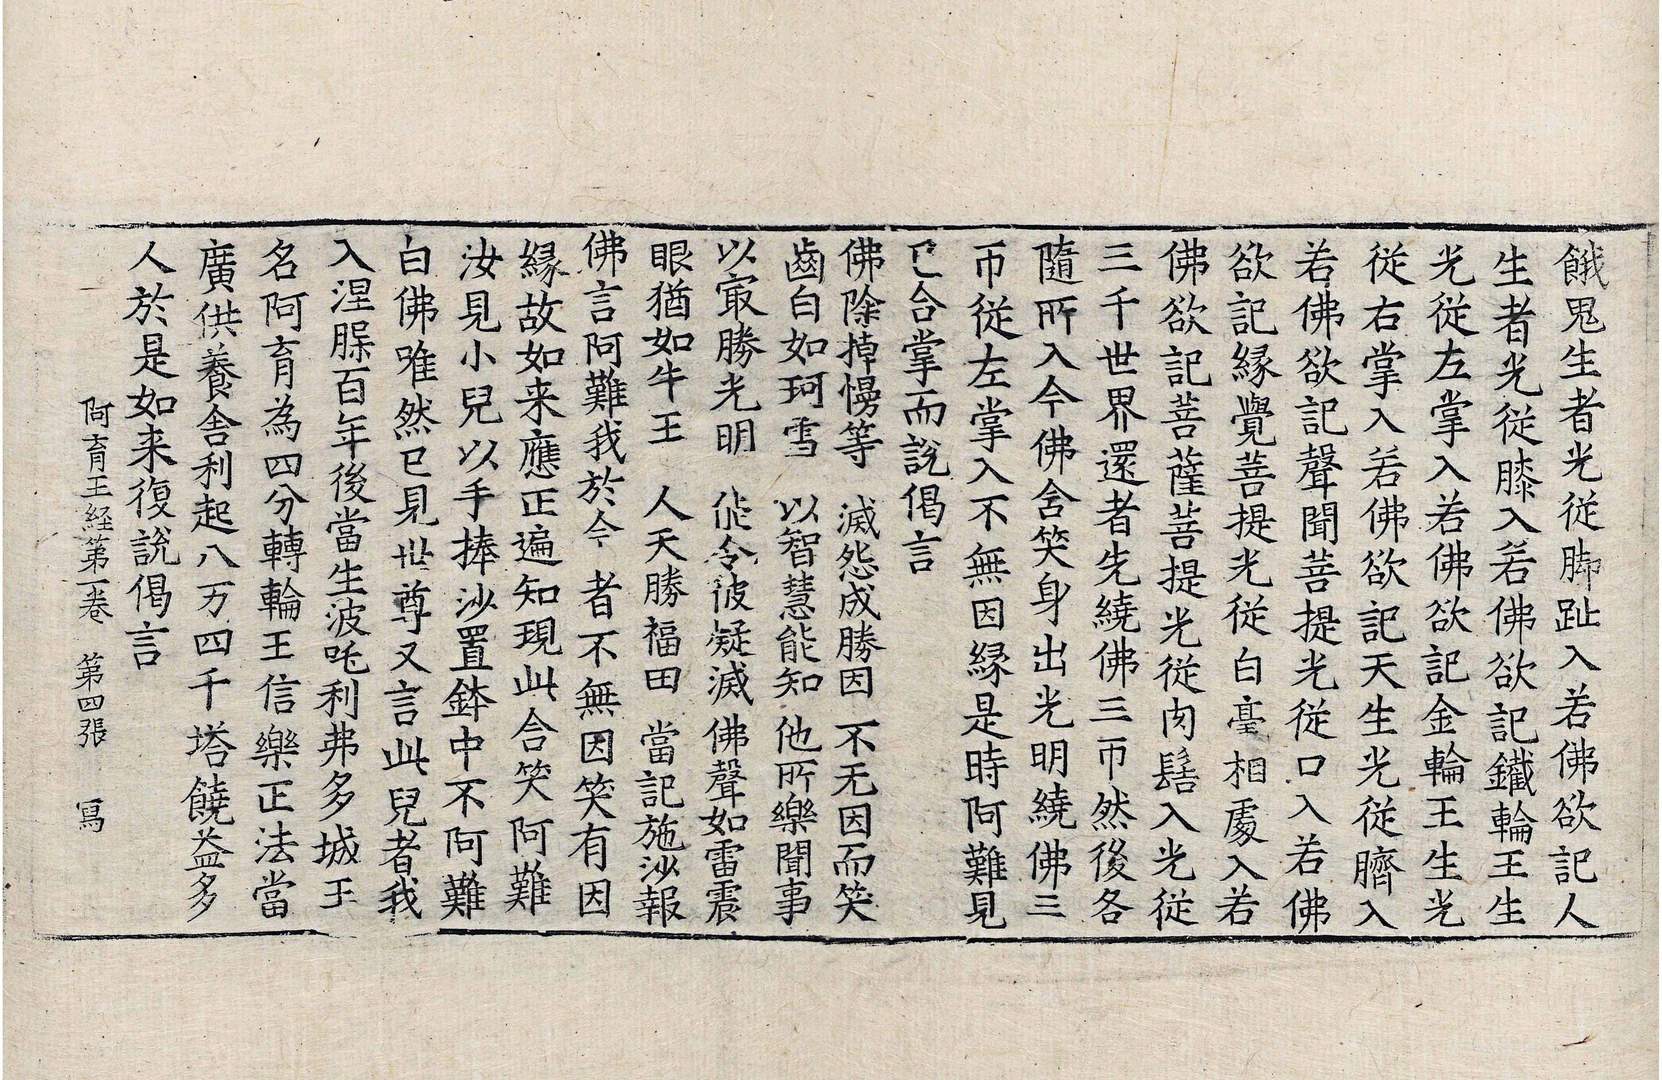 餓鬼生者光従脚趾入若佛欲記人
生者光従膝入若佛欲記鐵輪王生
光従左掌入若佛欲記金輪王生光
従右掌入若佛欲記天生光従臍入
若佛欲記聲聞菩提光従口入若佛
欲記縁覺菩提光従白毫相處入若
佛欲記菩薩菩提光従肉髻入光従
三千世界還者先繞佛三帀然後各
隨所入今佛含笑身出光明繞佛三
帀従左掌入不無因縁是時阿難見
已合掌而說偈言
佛除掉慢等　滅怨成勝因　不无因而笑
齒白如珂雪　以智慧能知　他所樂聞事
以㝡勝光明　能令彼疑滅　佛聲如雷震
眼猶如牛王　人天勝福田　當記施沙報
佛言阿難我於今者不無因笑有因
縁故如来應正遍知現此含笑阿難
汝見小兒以手捧沙置鉢中不阿難
白佛唯然已見世尊又言此兒者我
入涅槃百年後當生波吒利弗多城王
名阿育為四分轉輪王信樂正法當
廣供養舎利起八万四千塔饒益多
人於是如来復說偈言
阿育王経第一卷　第四張　寫